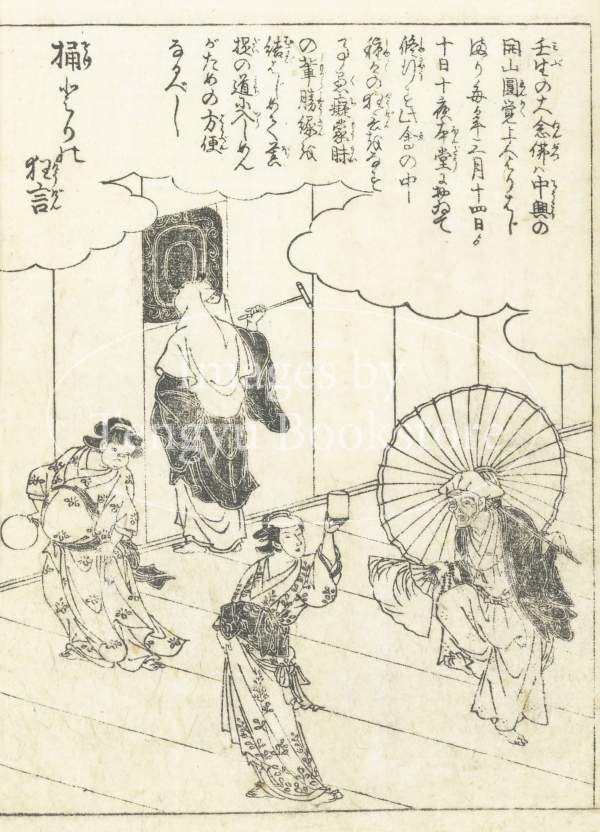 壬生の大念佛ハ中興の
開山圓覚上人よりはじ
まり毎年三月十四日ゟ
十日十夜本堂に於ゐて
此會の中
種々の狂言をなす
愚癡蒙昧
の輩勝縁を
結バしめ
提の道に入しめん
がための方便
なるべし
桶とりの
狂言
Images by
Tengyu Bookstore